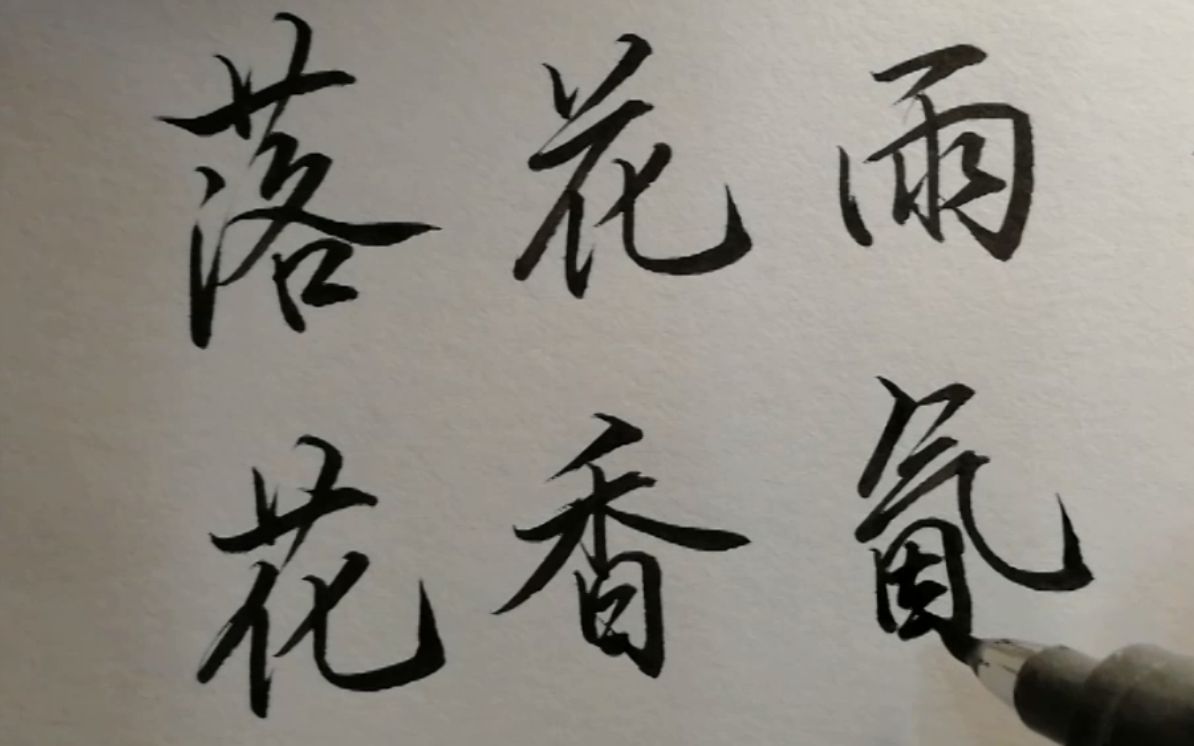 落花雨
花香氤